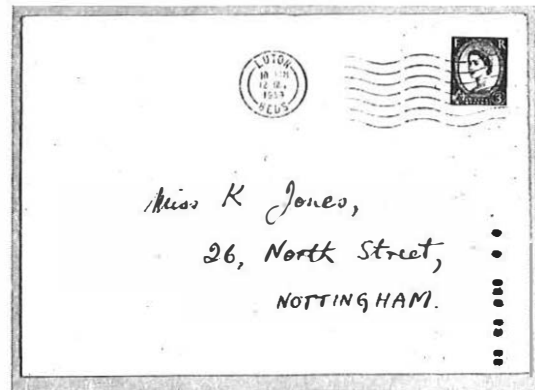 LUTON
12 12.
BEDS
E R
Miss K Jones,
26, North Street,
NOTTINGHAM.